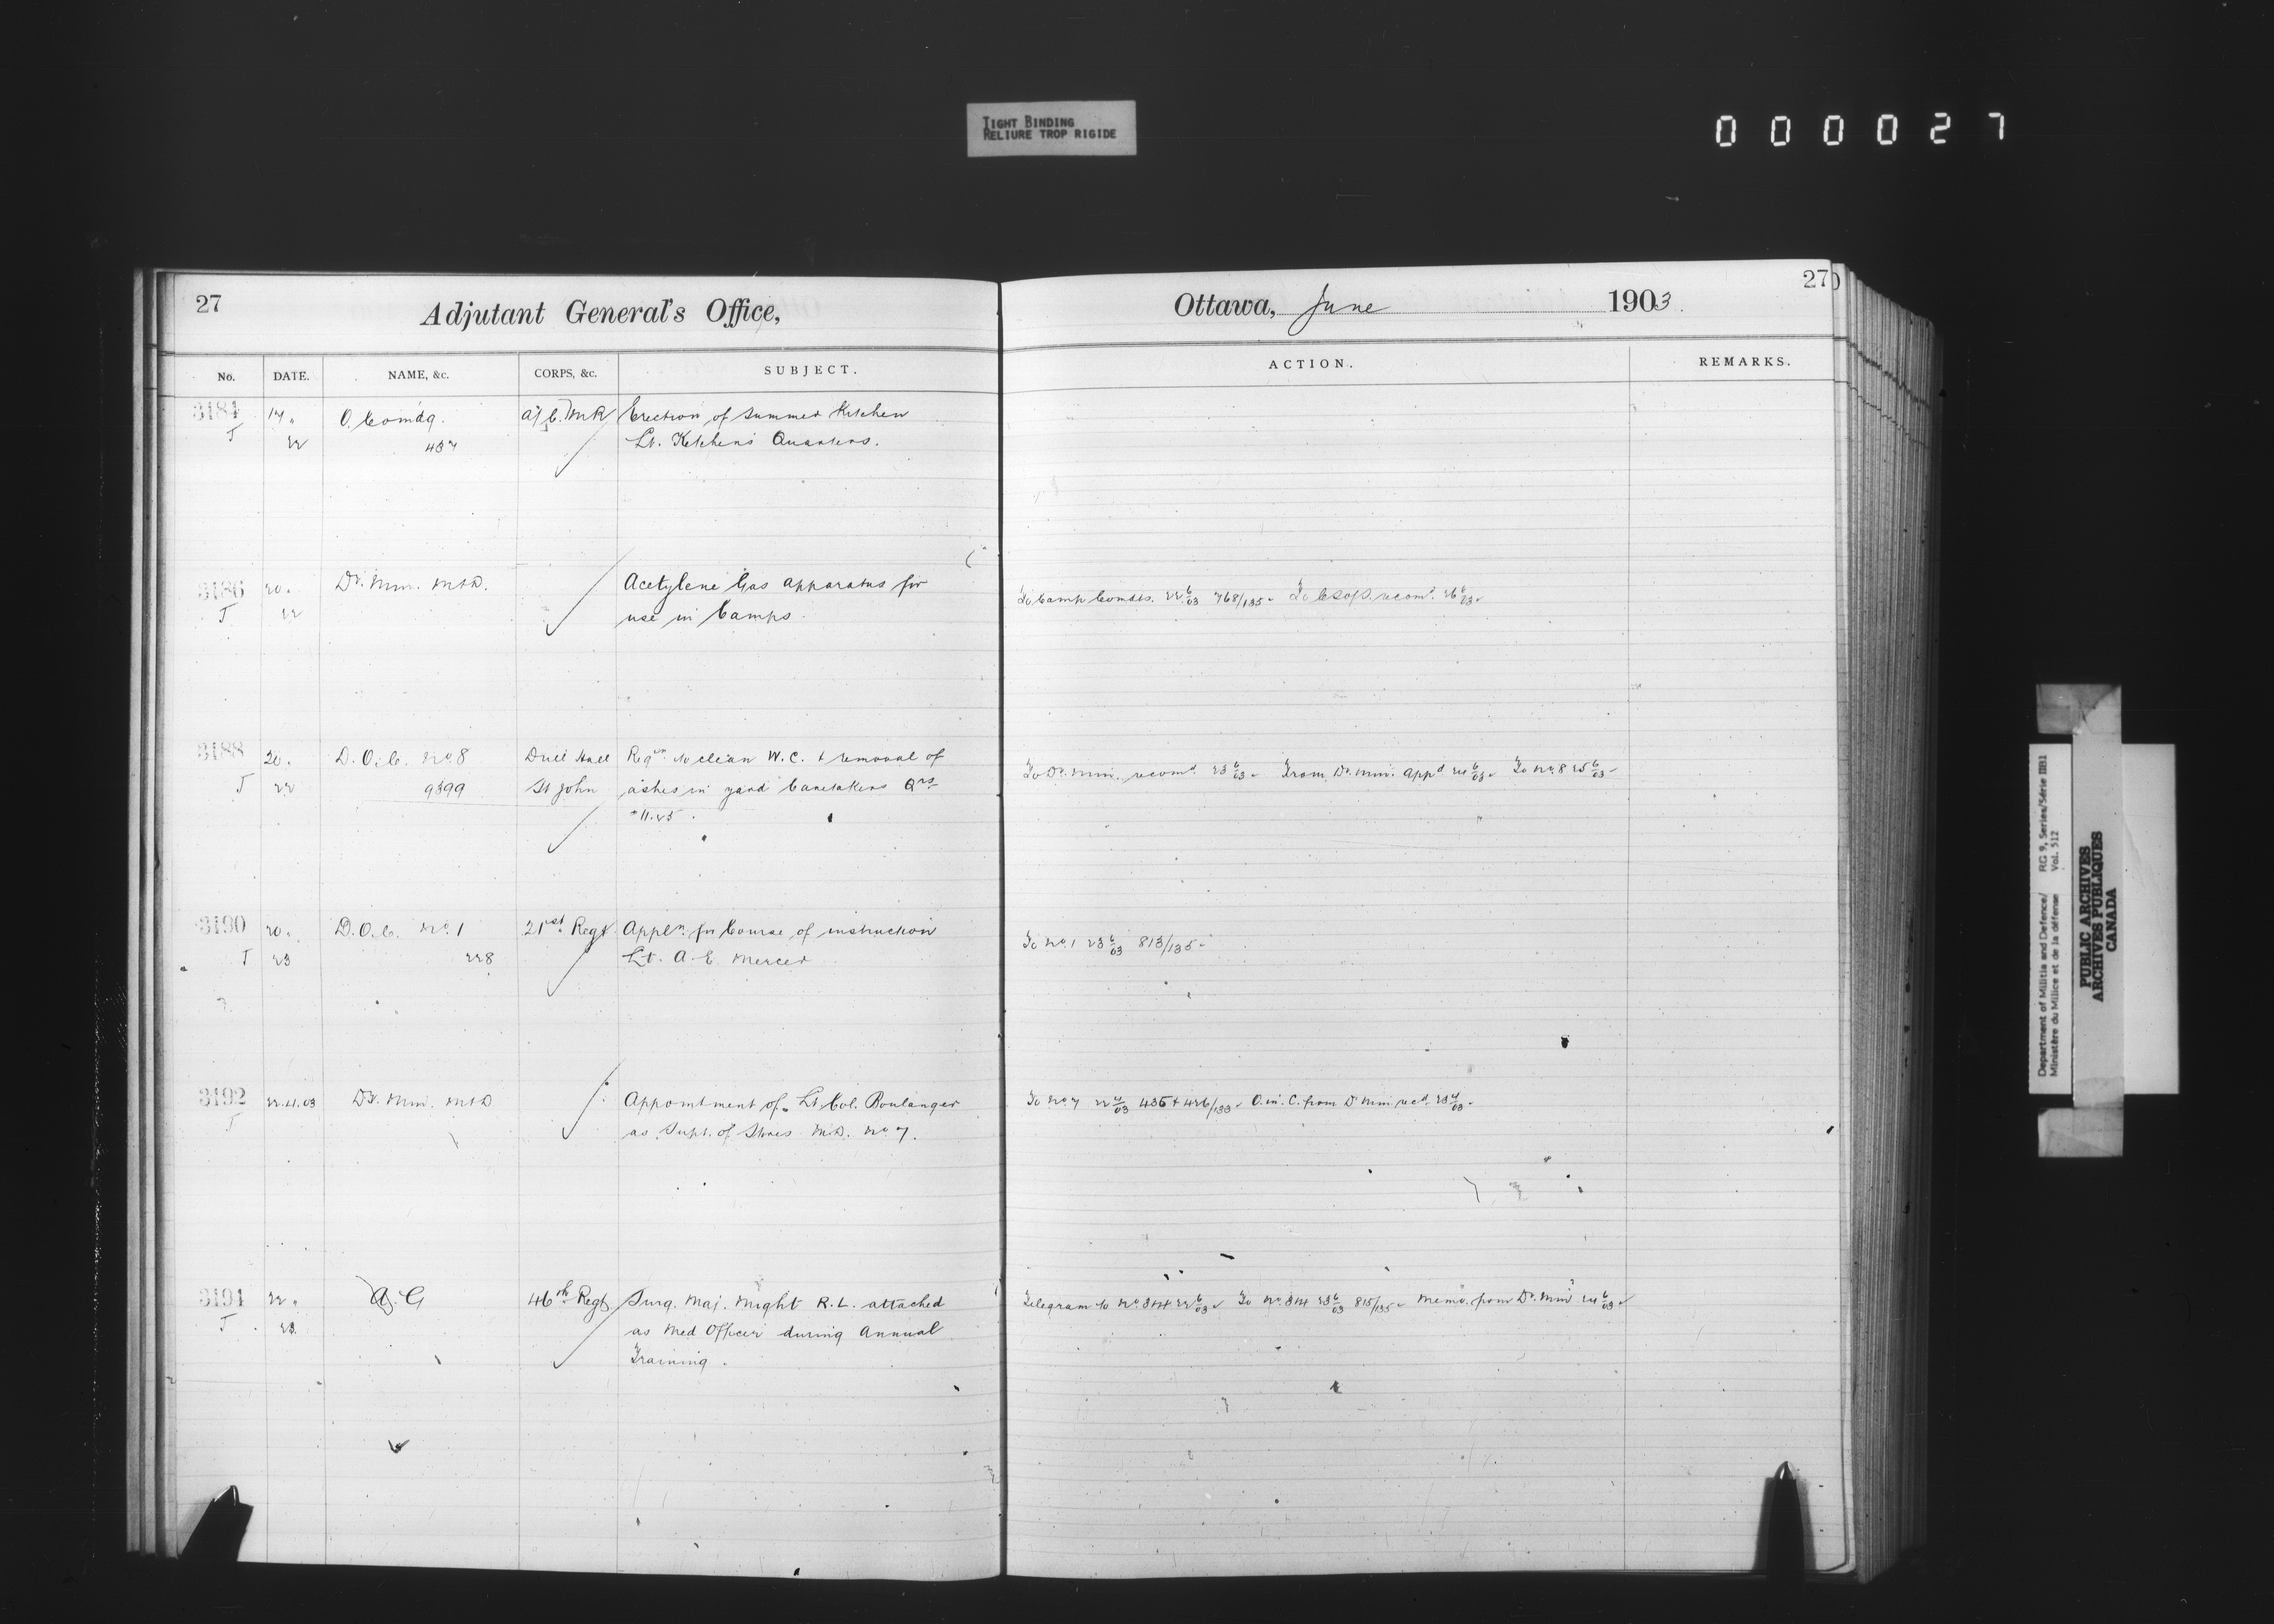 TIGHT BINDING
RELIURE TROP RIGIDE
000027
27
Adjutant General's Office,
No. DATE. NAME, &c. CORPS, &c. SUBJECT.
3184 17 " O. Comdg. "A" C.M.R. Erection of Summer Kitchen
T 22 437 Lt. Ketchen's Quarters.
3186 20 " Dr. Min. M&D. Acetylene Gas apparatus for
T 22 use in Camps.
3188 20 " D.O.C. No. 8 Drill Hall Reqn. to clean W.C. & removal of
T 22 9399 St John ashes in yard Caretakers Qrs
$11.25.
3190 20 " D.O.C. No. 1 21st Regt Appln. for Course of instruction
T 23 228 Lt. A. E. Mercer
3192 22.4.03 Dr. Min. M&D Appointment of Lt. Col. Boulanger
T as Supt. of Stores M.D. No 7.
3194 22 " A. G 46th Regt. Surg. Maj. Might R. L. attached
T 23 as Med Officer during Annual
Training.
27
Ottawa, June 1903.
ACTION. REMARKS.
To Camp Comdts. 22 6/03 768/135 To recom. 26 6/03
To Dr. Min. recomd. 23 6/03 From Dr. Min. appd 24 6/03 To No. 8 25 6/03
To No. 1 23 6/03 813/135
To No 7 22 4/03 435 & 426/133 O. in C. from Dr Min recd. 23 4/03
Telegram to No. 3&4 22 6/03 To No. 3&4 23 6/03 815/135 Memo. from Dr. Min 24 6/03
Department of Militia and Defence/ RG 9, Series/Série IIB1
Ministère du Milice et de la défense Vol. 512
PUBLIC ARCHIVES
ARCHIVES PUBLIQUES
CANADA